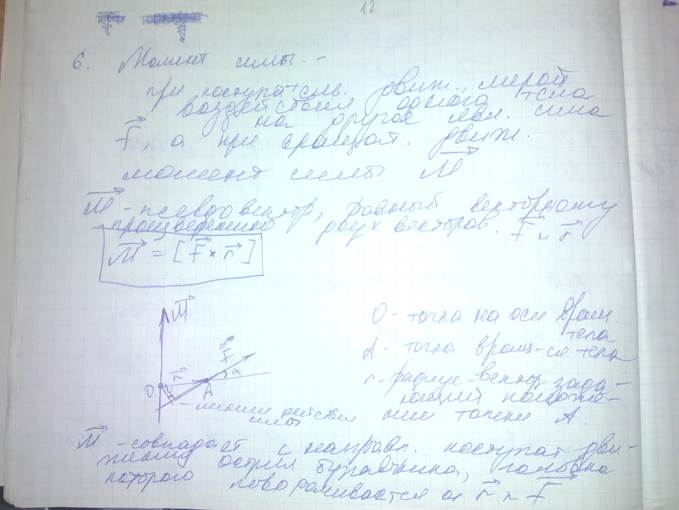 12
6. Момент силы. –
при поступательн. движ., мерой
воздействия одного тела
на другое явл. сила
F, а при вращат. движ.
момент силы M
M - псевдовектор, равный векторному
произведению двух векторов. F и r
M = [F × r]
M
F
O r A α
- линия действия
силы
O - точка на оси вращ.
тела
A - точка вращ-ся тела
r - радиус-вектор, зада-
ющий положе-
ние точки A
M - совпадает с направл. поступат. дви-
жения острия буравчика, головка
которого поворачивается от r к F